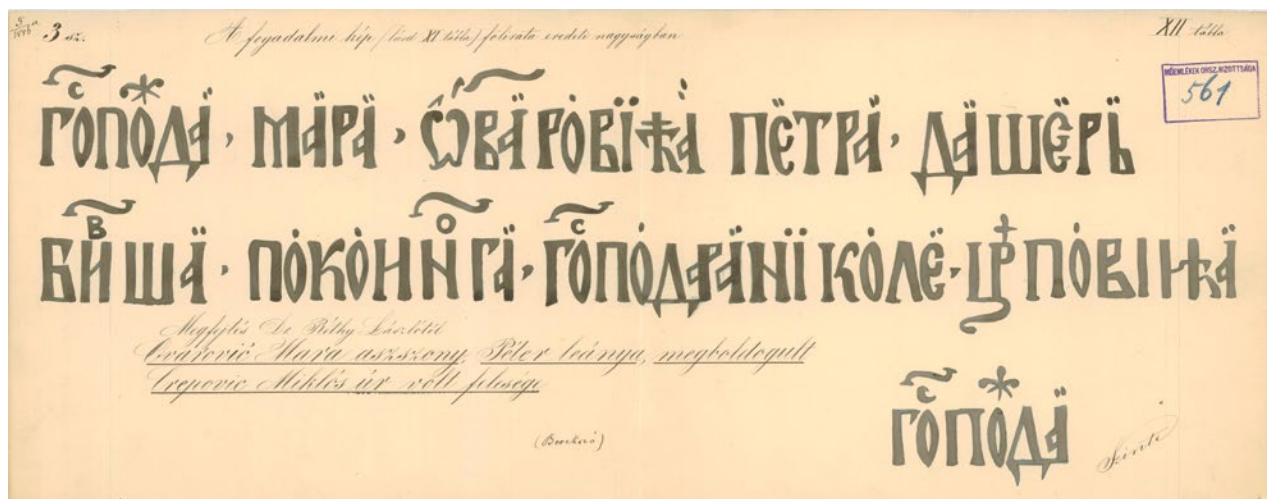 3 sz. A fogadalmi kép (lásd XI tábla) fölirata eredeti nagyságban XII tábla
MŰEMLÉKEK ORSZ. BIZOTTSÁGA
561
гⷭ҇опода · мара · ѡвановіћа петра · дашерь
биⷡ҇ша · покоинⷪ҇га · гⷭ҇оподара николе · црповића
Megfejtés Dr Réthy Lászlótól
Ovárović Mara aszszony, Péter leánya, megboldogult
Crepovic Miklós úr volt felesége
гⷭ҇опода